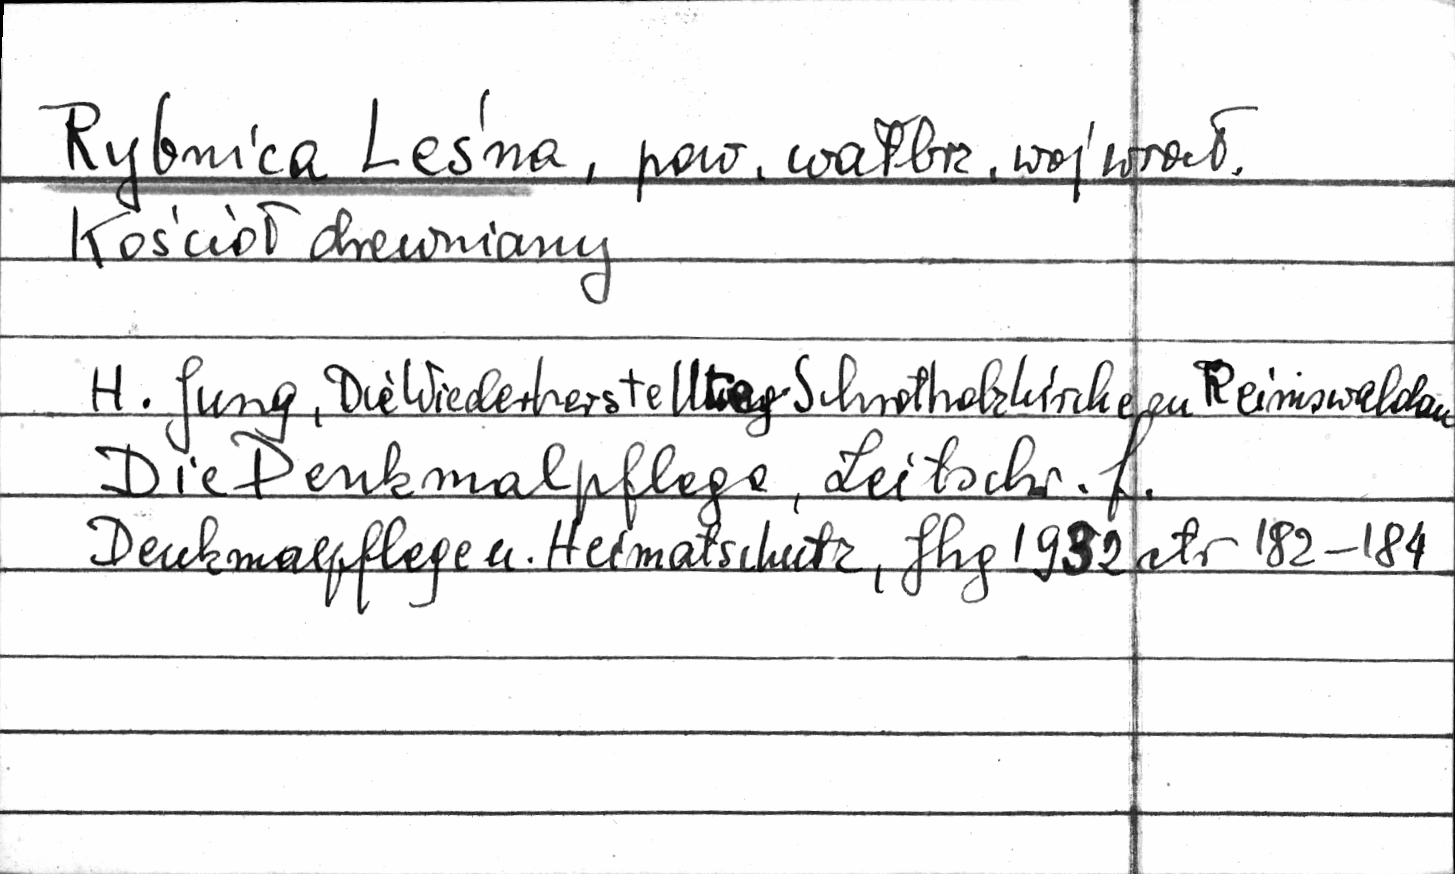 Rybnica Leśna, pow. wałbrz. woj wrocł.
Kościół drewniany
H. Jung, Die Wiederherstellung Schrotholzkirche zu Reimswaldau
Die Denkmalpflege, Zeitschr. f.
Denkmalpflege u. Heimatschutz, Jhg 1932 str 182-184